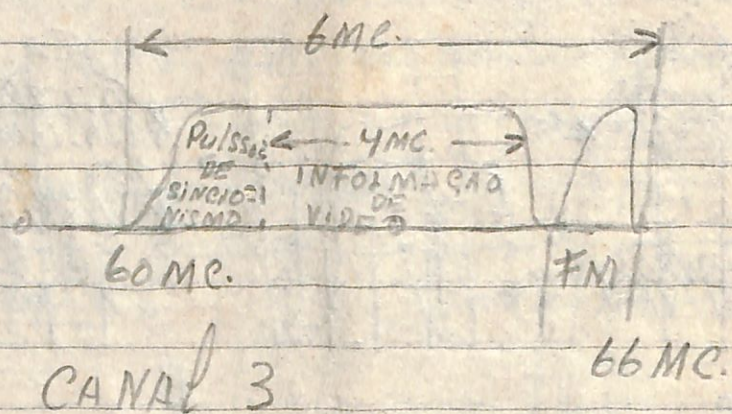 6 MC.
Pulsos
DE
SINCRO=
NISMO
4 MC.
INFORMAÇÃO
DE
VIDEO
60 MC.
FM
66 MC.
CANAL 3